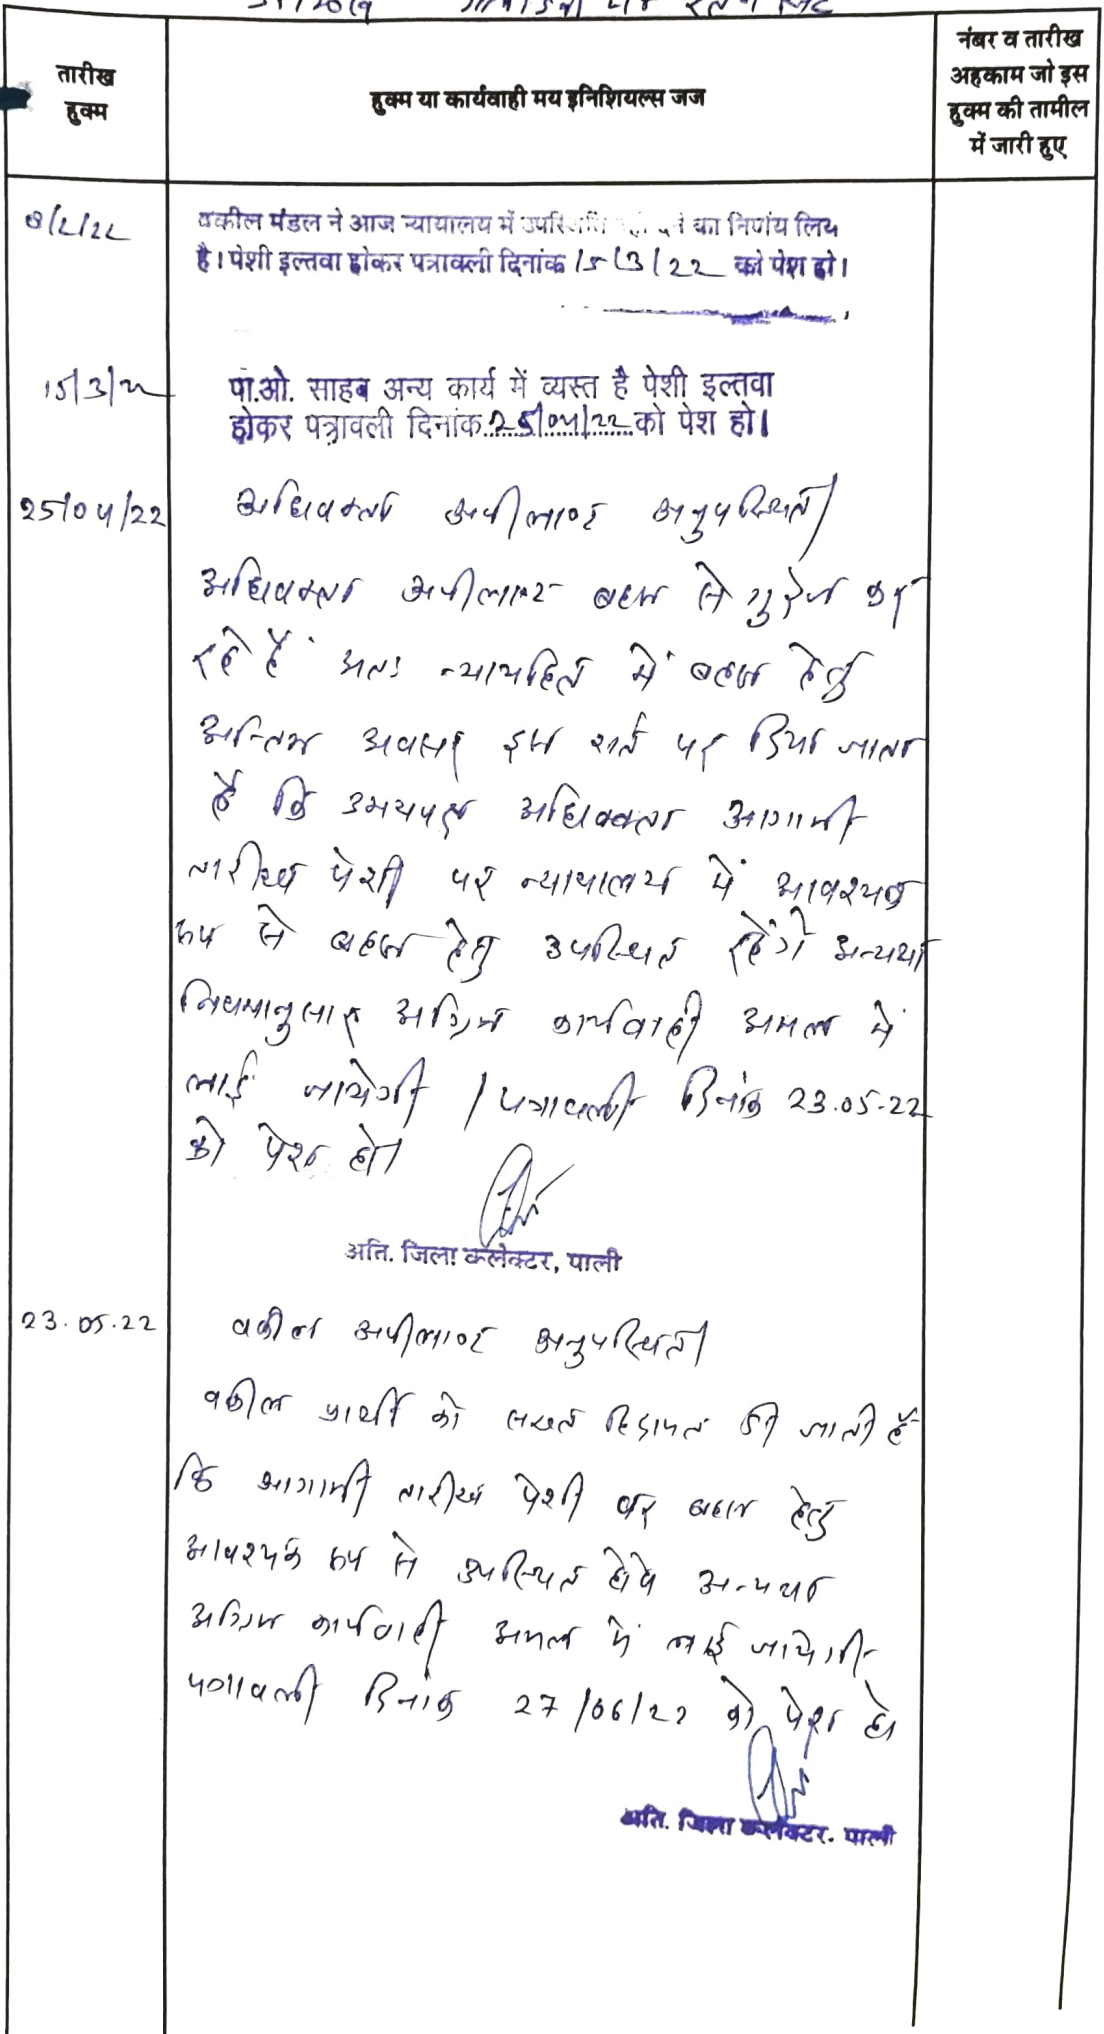 तारीख
हुक्म
हुक्म या कार्यवाही मय इनिशियल्स जज
नंबर व तारीख
अहकाम जो इस
हुक्म की तामील
में जारी हुए
8/2/22
वकील मंडल ने आज न्यायालय में उपस्थिति नहीं देने का निर्णय लिय
है। पेशी इल्तवा होकर पत्रावली दिनांक 15/3/22 को पेश हो।
15/3/22
पी.ओ. साहब अन्य कार्य में व्यस्त है पेशी इल्तवा
होकर पत्रावली दिनांक 25/04/22 को पेश हो।
25/04/22
अधिवक्ता अपीलाण्ट अनुपस्थित।
अधिवक्ता अपीलाण्ट बहस से गुरेज कर
रहे हैं अतः न्यायहित में बहस हेतु
अन्तिम अवसर इस शर्त पर दिया जाता
है कि उभयपक्ष अधिवक्ता आगामी
तारीख पेशी पर न्यायालय में आवश्यक
रूप से बहस हेतु उपस्थित रहेंगे अन्यथा
नियमानुसार अग्रिम कार्यवाही अमल में
लाई जायेगी। पत्रावली दिनांक 23.05.22
को पेश हो।
अति. जिला कलेक्टर, पाली
23.05.22
वकील अपीलाण्ट अनुपस्थित।
वकील प्रार्थी को सख्त हिदायत दी जाती हैं
कि आगामी तारीख पेशी पर बहस हेतु
आवश्यक रूप से उपस्थित होवे अन्यथा
अग्रिम कार्यवाही अमल में लाई जायेगी
पत्रावली दिनांक 27/06/22 को पेश हो
अति. जिला कलेक्टर. पाली